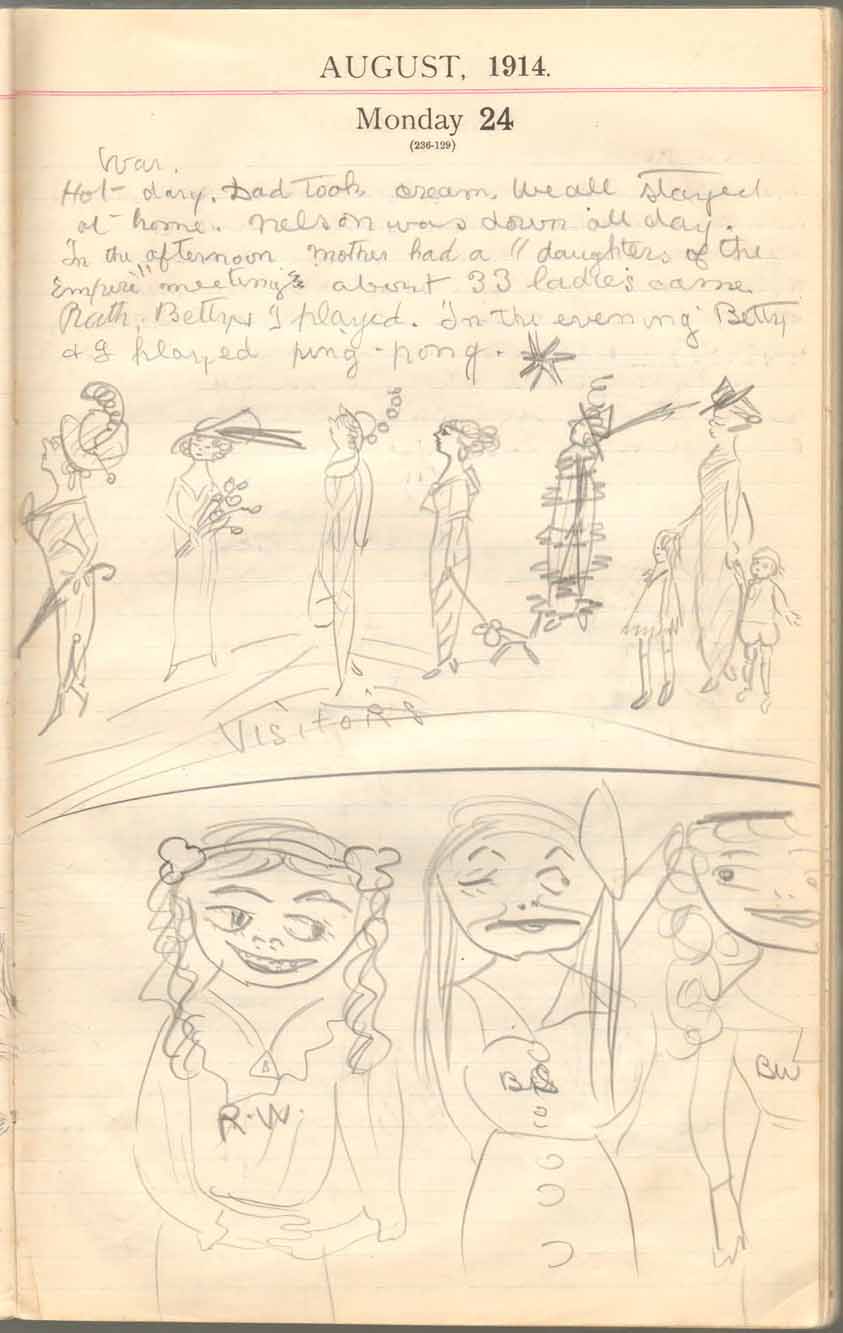 AUGUST, 1914.
Monday 24
(236-129)
War.
Hot day. Dad took cream. We all stayed
at home. Nelson was down all day.
In the afternoon mother had a "daughters of the
Empire" meeting & about 33 ladies came.
Ruth, Betty & I played. In the evening Betty
& I played ping-pong.
VISITORS
R.W.
BW